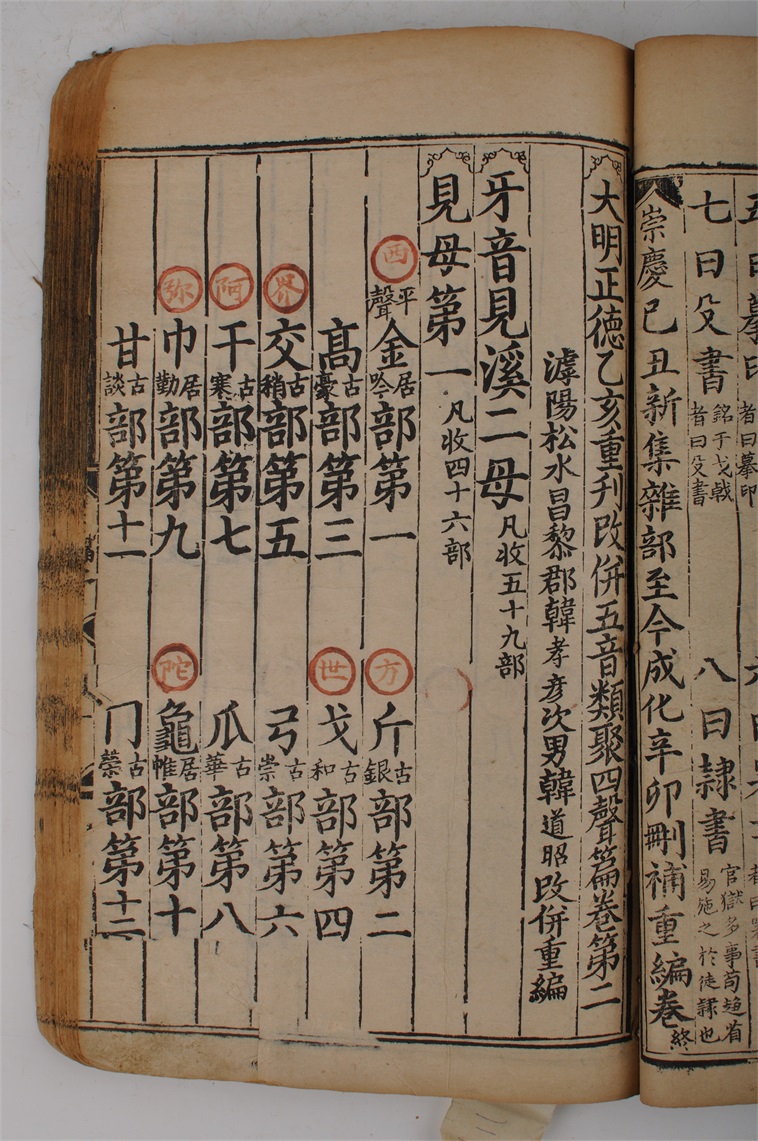 七曰殳書 銘于戈戟者曰殳書 八曰隷書 官獄多事苟趨省易施之於徒隷也
崇慶己丑新集雜部至今成化辛卯刪補重編卷終
大明正德乙亥重刋改併五音類聚四聲篇卷第二
滹陽松水昌黎郡韓孝彦次男韓道昭改併重編
牙音見溪二母 凡收五十九部
見母第一 凡收四十六部
西 平聲 金 居吟 部第一 方 斤 古銀 部第二
高 古豪 部第三 世 戈 古和 部第四
界 交 古稍 部第五 弓 古崇 部第六
阿 干 古寒 部第七 瓜 古華 部第八
弥 巾 居勤 部第九 陀 龜 居帷 部第十
甘 古談 部第十一 冂 古縈 部第十二